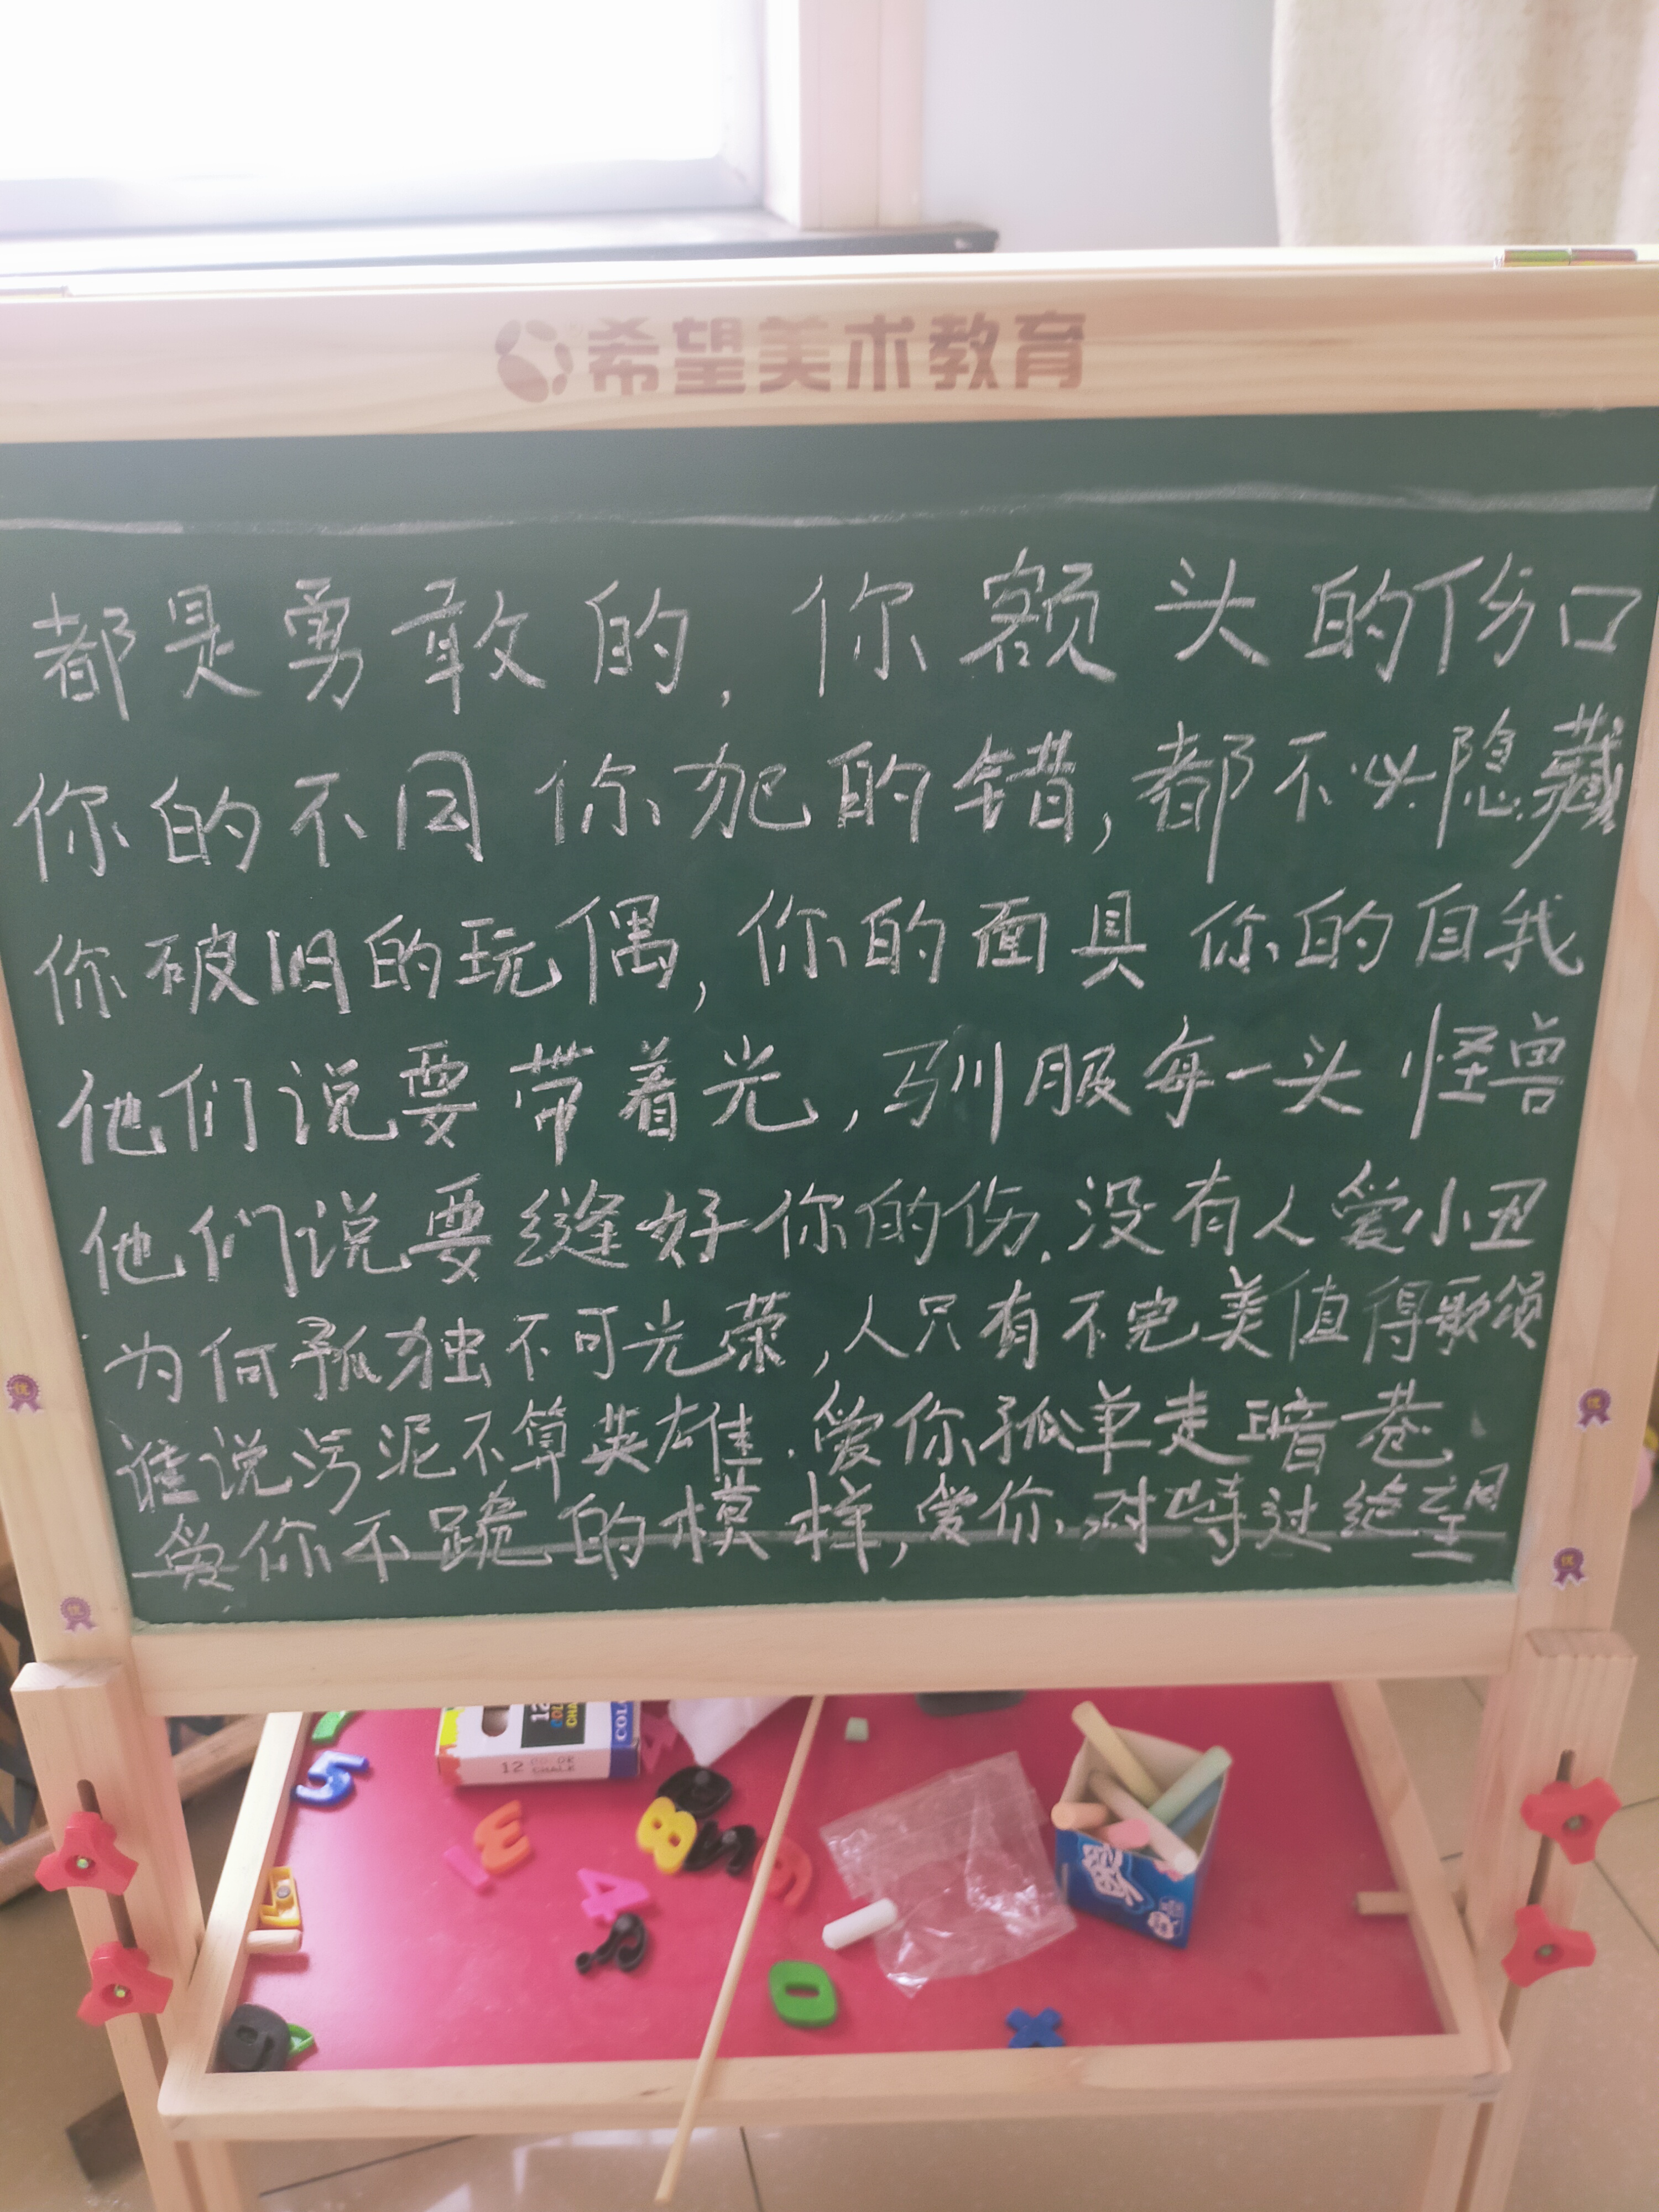 希望美术教育
都是勇敢的,你额头的伤口
你的不同 你犯的错,都不必隐藏
你破旧的玩偶,你的面具 你的自我
他们说要带着光,驯服每一头怪兽
他们说要缝好你的伤.没有人爱小丑
为何孤独不可光荣,人只有不完美值得歌颂
谁说污泥不算英雄.爱你孤单走暗巷
爱你不跪的模样,爱你对峙过绝望
12
COLOR CHALK